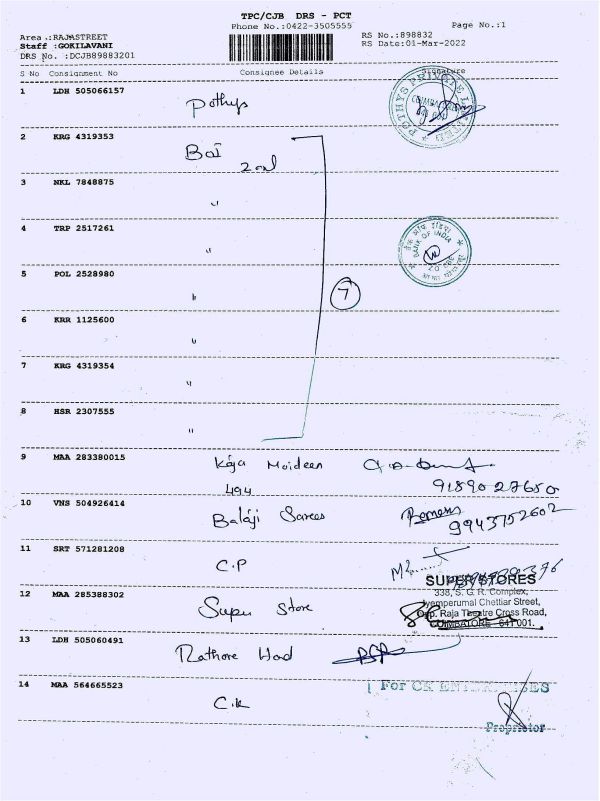 TPC/CJB DRS - PCT
Phone No.:0422-3505555
Page No.:1
Area :RAJASTREET
Staff :GOKILAVANI
DRS No. :DCJB89883201
RS No.:898832
RS Date:01-Mar-2022
S No Consignment No Consignee Details Signature
1 LDH 505066157
Pothys
POTHYS PRIVATE LIMITED
2 KRG 4319353
BOI
3 NKL 7848875
"
4 TRP 2517261
"
BANK OF INDIA
5 POL 2528980
"
7
6 KRR 1125600
"
7 KRG 4319354
"
8 HSR 2307555
"
9 MAA 283380015
Kaja Moideen
494
9189027650
10 VNS 504926414
Balaji Sarees
9943752602
11 SRT 571281208
C.P
12 MAA 285388302
Super Store
SUPER STORES
338, S. G. R. Complex,
Iyemperumal Chettiar Street,
Opp. Raja Theatre Cross Road,
COIMBATORE - 641 001.
13 LDH 505060491
Rathore Hand
14 MAA 564665523
C.K
For CK ENTERPRISES
Proprietor